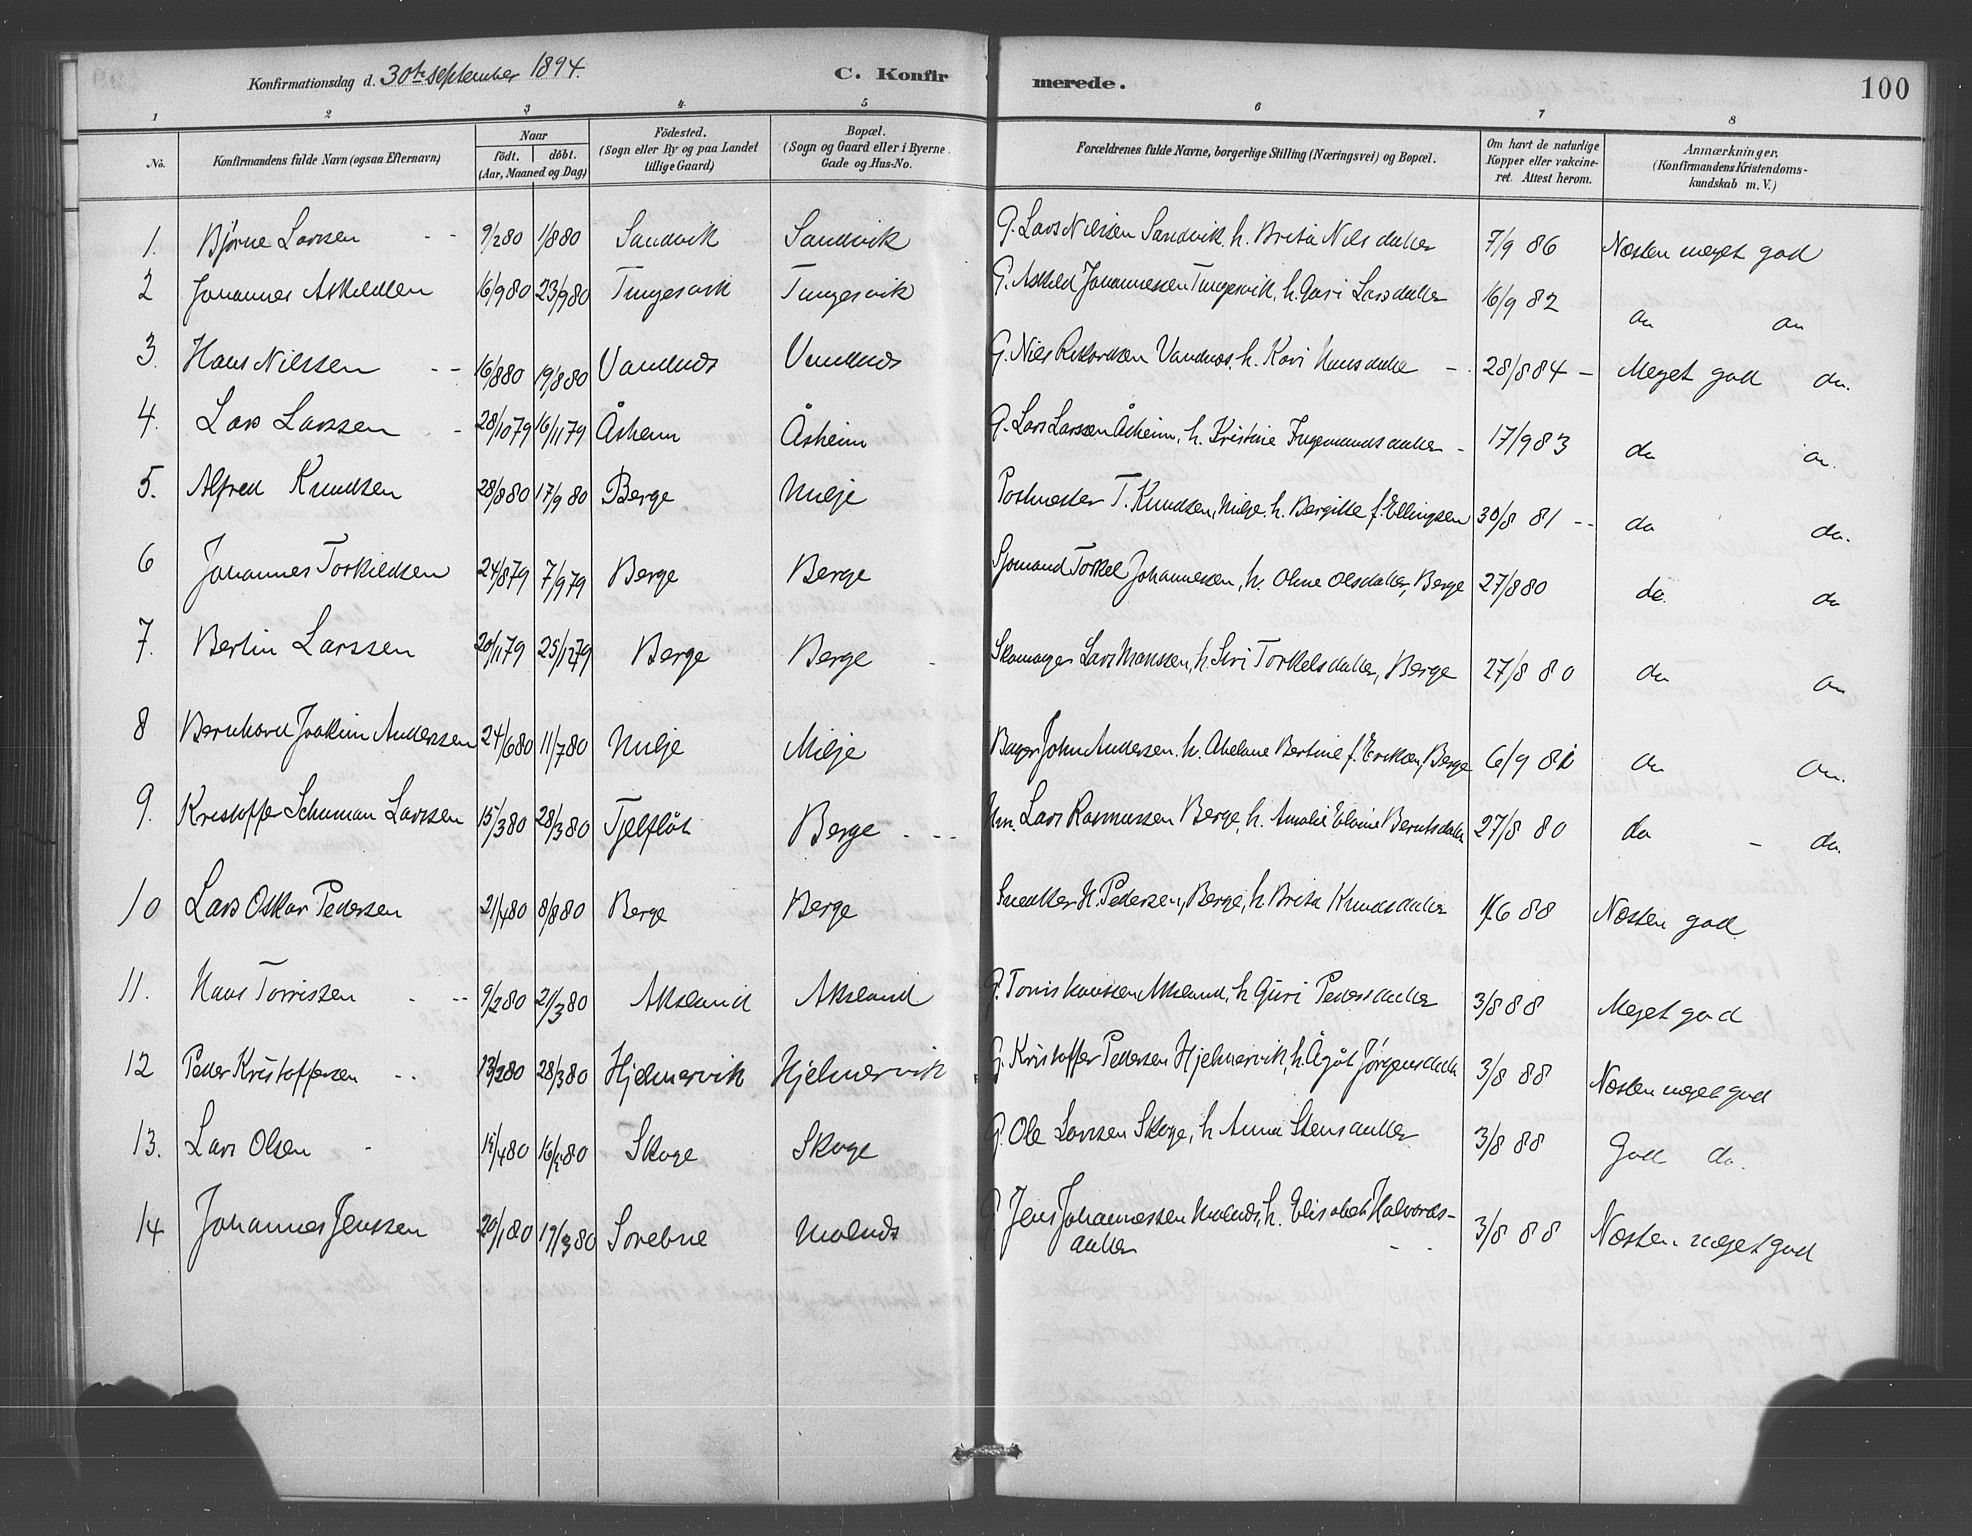 Konfirmationsdag d. 30te september 1894. C. Konfirmerede. 100
1 2 3 4 5 6 7 8
No. Konfirmandens fulde Navn (ogsaa Efternavn) Naar födt. döbt. (Aar, Maaned og Dag) Födested. (Sogn eller By og paa Landet tillige Gaard) Bopæl. (Sogn og Gaard eller i Byerne Gade og Hus-No. Forældrenes fulde Navne, borgerlige Stilling (Næringsvei) og Bopæl. Om havt de naturlige Kopper eller vakcineret. Attest herom. Anmærkninger. (Konfirmandens Kristendomskundskab m. V.)
1. Bjørne Larsen 9/2 80 1/8 80 Sandvik Sandvik G. Lars Nilssen Sandvik, h. Brita Nilsdatter 7/9 86 Næsten meget god
2 Johannes Askildsen 16/9 80 23/9 80 Tungesvik Tungesvik G. Askild Johannessen Tungesvik, h. Guri Larsdatter 16/9 82 do do
3. Hans Nilssen 16/8 80 19/8 80 Vandnæs Vandnæs G. Nils Vandnæs, h. Kari Hansdatter 28/8 84 Meget god do.
4. Lars Larssen 28/10 79 16/11 79 Åsheim Åsheim G. Lars Larssen Åsheim, h. Kristine Ingemundsdatter 17/9 83 do do.
5. Alfred Knudsen 28/8 80 17/9 80 Berge Milje Postmester T. Knudsen, Milje, h. Bergitte f. Ellingsen 30/8 81 do do.
6 Johannes Torkildsen 24/8 79 7/9 79 Berge Berge Sjömand Torkel Johannessen, h. Oline Olsdatter, Berge 27/8 80 do. do
7. Bertin Larssen 20/11 79 25/12 79 Berge Berge Skomager Lars Monssen, h. Siri Torkelsdatter, Berge 27/8 80 do do
8 Bernhard Joakim Andersen 24/6 80 11/7 80 Milje Milje Bager John Andersen, h. Abelone Bertine f. Eriksen, Berge 6/9 81 do do.
9. Kristoffer Schuman Larssen 15/3 80 28/3 80 Tjelflåt Berge Lars Rasmussen Berge, h. Amalie Berntsdatter 27/8 80 do do.
10 Lars Oskar Pedersen 21/4 80 8/8 80 Berge Berge Snedker H. Pedersen, Berge, h. Brita Knudsdatter 1/6 88 Næsten god
11. Hans Torrissen 9/2 80 21/3 80 Aksland Aksland G. Torris Hanssen Aksland, h. Guri Pedersdatter 3/8 88 Meget god
12 Peder Kristoffersen 13/2 80 28/3 80 Hjelmervik Hjelmervik G. Kristoffer Pedersen Hjelmervik, h. Ågåt Jørgensdatter 3/8 88 Næsten meget god
13. Lars Olsen 15/4 80 16/5 80 Skoge Skoge G. Ole Larssen Skoge, h. Anna Stensdatter 3/8 88 God do.
14 Johannes Jenssen 20/1 80 19/3 80 Sorebne Molnæs G. Jens Johannessen Molnæs, h. Elisabet Halvordsdatter 3/8 88 Næsten meget god